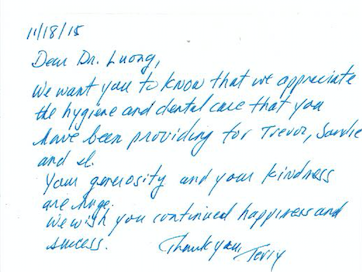 11/18/15
Dear Dr. Luong,
We want you to know that we appreciate
the hygiene and dental care that you
have been providing for Trevor, Sandie
and I.
Your generosity and your kindness
are huge.
We wish you continued happiness and
success. Thank you, Terry